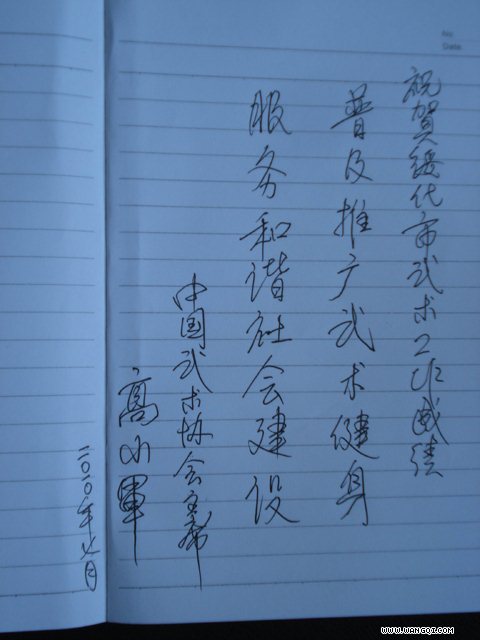 祝贺绥化市武术工作成绩
普及推广武术健身
服务和谐社会建设
中国武术协会主席
高小軍
二〇一〇年七月
No
Date
WWW.WANGQZ.COM